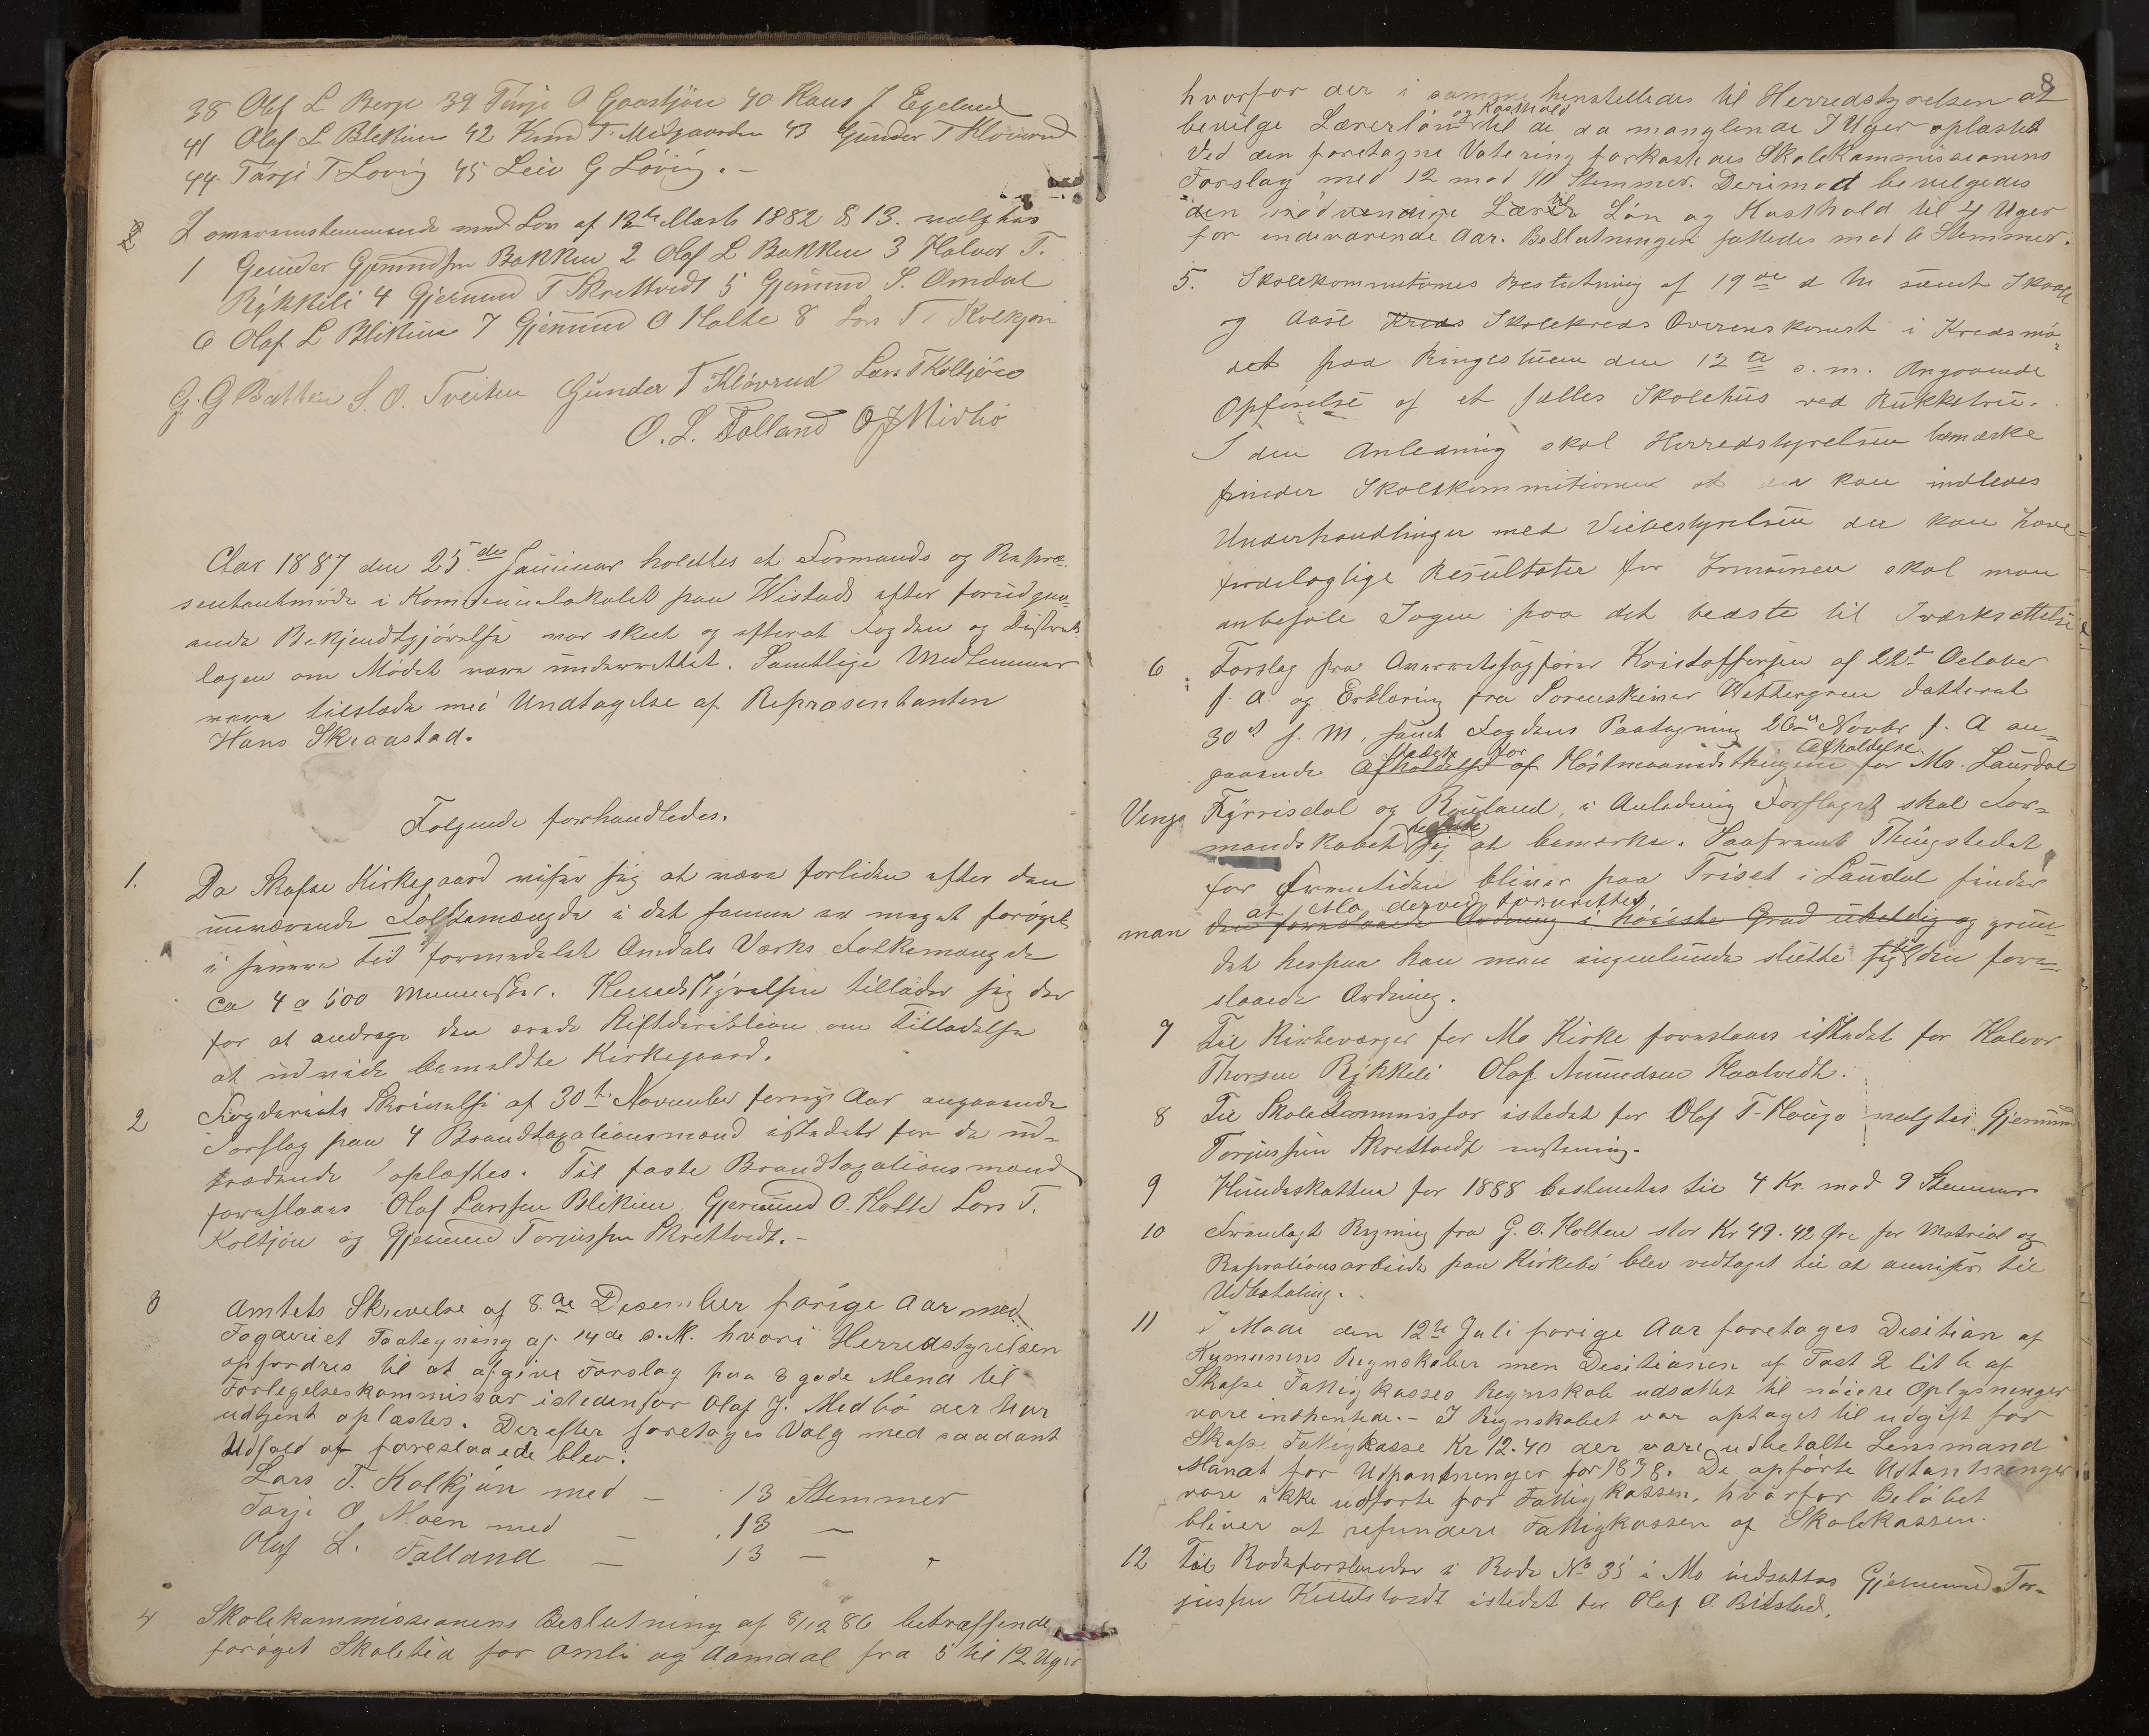 38 Olaf L Berge 39 Tarje O Gaastjøn 40 Hans J Egeland
41 Olaf L Blekien 42 Knud T. Midgaarden 43 Gunder T Kløvrud
44. Tarje T Lovig 45 Leiv G Løvig. -
2 I overensstemmende med Lov af 12te Marts 1882 § 13. valgtes
1 Gunder Gjermundsen Bakken 2 Olaf L Bakken 3 Halvor T.
Rykkeli 4 Gjermund T Skrettvedt 5 Gjermund S. Omdal
6 Olaf L Blikien 7 Gjermund O Holte 8 Lars T. Kolkjøn
G. G Bakken S. O. Tveiten Gunder T Kløvrud Lars T Koltjøn
O. L. Folland O J Midbø
Aar 1887 den 25de Januar holdtes et Formands og Repræ-
sentantmøde i Kommunelokalet paa Wistad efter forudgaa-
ende Bekjendtgjørelse var skeet og efterat Fogden og Distrikts
lægen om Mødet vare underrettet. Samtlige Medlemmer
vare tilstæde med Undtagelse af Repræsentanten
Hans Skraastad.
Følgende forhandledes.
1. Da Skafse Kirkegaard viser sig at være forliden efter den
nuværende Folkemængde i det samme er meget forøget
i senere tid formedelst Omdals Værks Folkemængde
ca 4 a 500 Mennesker. Herredsstyrelsen tillader sig der
for at andrage den ærede Stiftdirektion om tilladelse
at udvide bemeldte Kirkegaard.
2 Fogderiets Skrivelse af 30te November forrige Aar angaaende
Forslag paa 4 Brandtaxationsmænd istedets for de ud-
trædende oplæstes. Til faste Brandtaxationsmænd
foreslaaes Olaf Larssen Blikien, Gjermund O. Holte Lars T.
Koltjøn og Gjermund Torjussen Skrettvedt. -
3 Amtets Skrivelse af 8de Desember forige Aar med
Fogderiet Paategning af 14de s. M. hvori Herredstyrelsen
opfordres til at afgive Forslag paa 3 gode Mend til
Forlegelseskommissær istedenfor Olaf J. Medbø der har
udtjent oplæstes. Derefter foretoges Valg med saadant
Udfald at foreslaaede blev:
Lars T. Kolkjøn med - 13 Stemmer
Tarje O Moen med - 13 -
Oluf L. Folland - 13 -
4 Skolekommissionens Beslutning af 8/12 86 betræffende
forøget Skoletid for Omli og Aamdal fra 5 til 12 Uger
8
hvorfor der i samme henstelledes til Herredstyrelsen at
og Kosthold
bevilge Lærerløn til de da manglende 7 Uger oplæstes
Ved den foretagne Votering forkastedes Skolekommissionens
Forslag med 12 mod 10 Stemmer. Derimod bevilgedes
den nødvendige Lærer Løn og Kosthold til 4 Uger
for indeværende Aar. Beslutningen fattedes med 6 Stemmer.
5. Skolekommitionens Beslutning af 19de d M samt Skafse
og Aase Kreds Skolekreds Overenskomst i Kredsmø-
det paa Ringestuen den 12te s. m. Angaaende
Opførelse af et fælles Skolehus ved Rukkstru.
I den Anledning skal Herredstyrelsen bemærke
finder Skolekommitionen at der kan indledes
Underhandlinger med Viebestyrelsen der kan have
fordelagtige Resultater for Kommunen skal man
anbefale Sagen paa det bedste til Iværksættelse
6 Forslag fra Overretssagfører Kristoffersen af 22d October
f. A. og Erklæring fra Sorenskriver Wettergren datteret
30d s. M, samt Fogdens Paategning 26de Novbr f. A an-
stedet for Afholdelse
gaaende Afholdelse af Høstmaanedsthingene for Mo. Laurdal
Venge Fyrrisdal og Rauland, i Anledning Forslaget skal For-
mandskabet sig at bemærke. Saafremt Thingstedet
for Fremtiden bliver paa Triset i Laudal finder
at Mo derved forurettes
man den foreslaaede Ordning i høieste Grad uheldig og grun-
det herpaa kan man ingenlunde støtte sig til den fore-
slaaede Ordning.
7 Til Kirkeværger for Mo Kirke foreslaaes istedet for Halvor
Thorsen Rykkeli Olaf Aamundsen Haatvedt.
8 Til Skolekommissær istedet for Olaf T. Hauge valgtes Gjermund
Torjussen Skrettvedt
9 Hundeskatten for 1888 bestemtes til 4 Kr. mod 9 Stemmer
10 Fremlagt Regning fra G. O. Holten stor Kr 49. 42 Øre for Matrial og
Reprationsarbeide paa Kirkebø blev vedtaget til at anvises til
Udbetaling.
11 I Møde den 12te Juli forige Aar foretoges Desition af
Kymunens Regnskaber men Desitionen af Post 2 lit b af
Skafse Fattigkasses Regnskab udsattes til nøiere Oplysninger
vare indhentede. - I Regnskabet var optaget til udgift for
Skafse Fattigkasse Kr 12.40 der vare udbetalte Lensmand
Manat for Udpantninger for 1878. De opførte Udpantninger
vare ikke udførte for Fattigkassen, hvorfor Beløbet
bliver at refundere Fattigkassen af Skolekassen.
12 Til Rodeforstander i Rode No 35 i Mo indsattes Gjermund Tor-
jussen istedet for Olaf O. Bitstad.